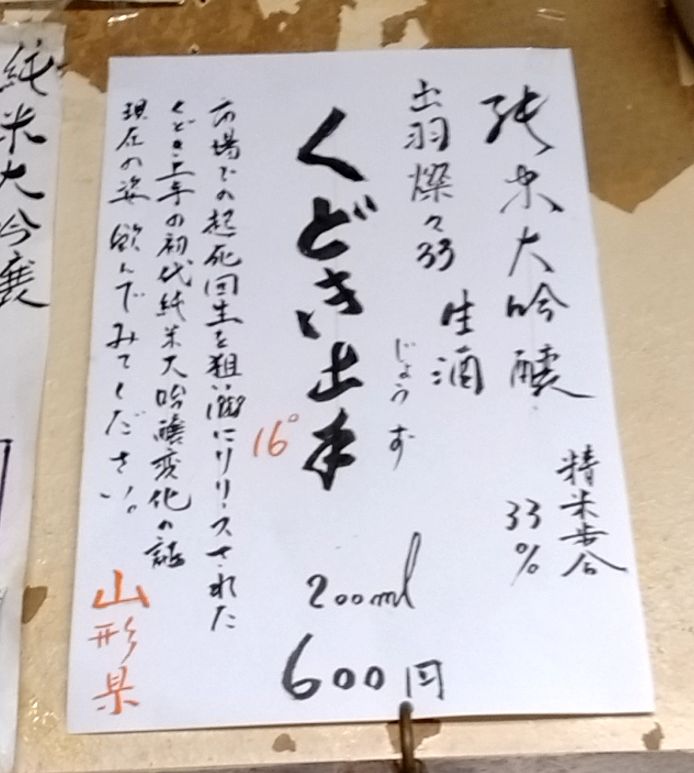 純米大吟醸
精米歩合
33%
出羽燦々33
生酒
じょうず
くどき上手
16°
200ml
600円
市場での起死回生を狙い にリリースされた
くどき上手の初代純米大吟醸変化の
現在の姿飲んでみてください。
山形県
純米大吟醸